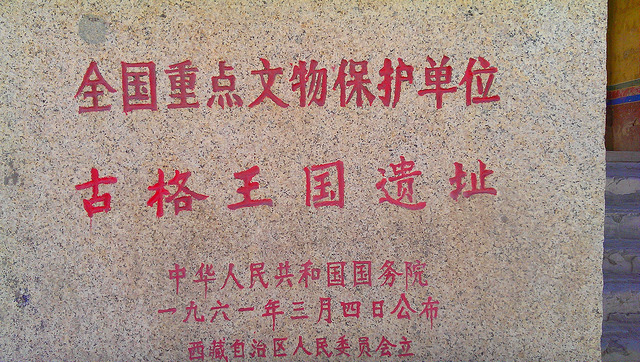 全国重点文物保护单位
古格王国遗址
中华人民共和国国务院
一九六一年三月四日公布
西藏自治区人民委员会立